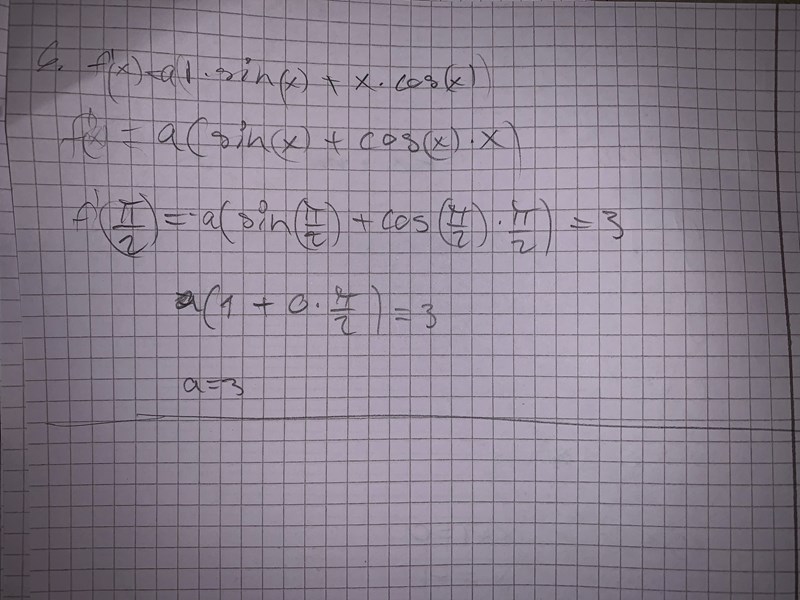 6. f'(x) = a(1 · sin(x) + x · cos(x))
f'(x) = a(sin(x) + cos(x) · x)
f'(π/2) = a(sin(π/2) + cos(π/2) · π/2) = 3
a(1 + 0 · π/2) = 3
a = 3